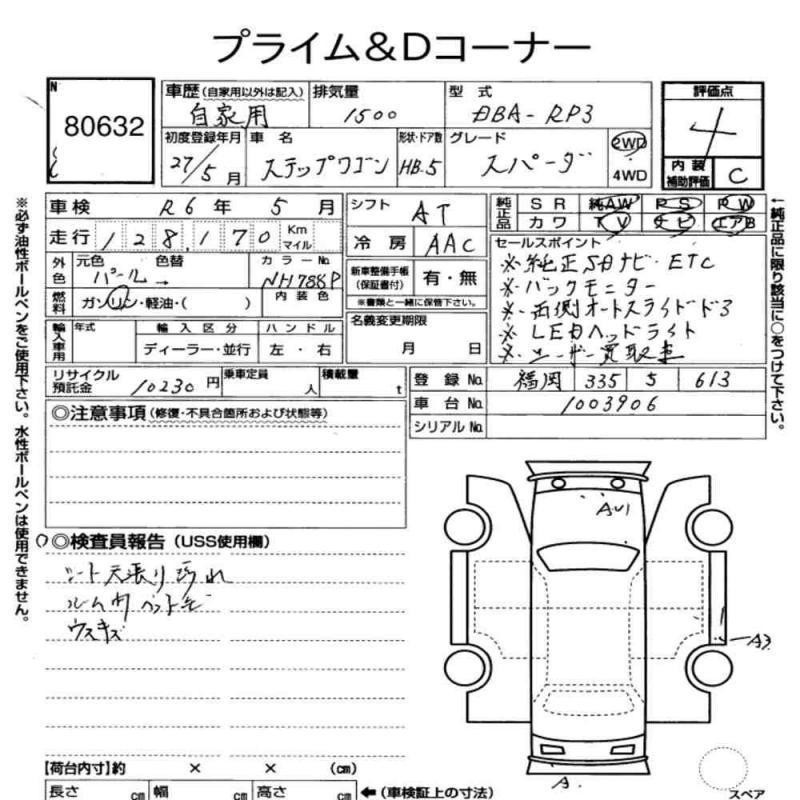 プライム&Dコーナー
N
80632
車歴(自家用以外は記入) 自家用
排気量 1500
型式 DBA-RP3
評価点 4
初度登録年月 27/5月
車名 ステップワゴン
形状・ドア数 HB.5
グレード スパーダ
2WD
4WD
内装補助評価 C
車検 R6年5月
シフト AT
純正品 SR 純AW PS PW
カワ TV ナビ エアB
走行 128,170 Km マイル
冷房 AAC
外色 元色 パール 色替 →
カラーNo. NH788P
内装色
新車整備手帳(保証書付) 有・無
※書類と一緒に保管下さい。
セールスポイント
※純正SDナビ ETC
※バックモニター
※両側オートスライドドア
※LEDヘッドライト
※ユーザー買取車
燃料 ガソリン・軽油・( )
輸入車用 年式 輸入区分 ハンドル
ディーラー・並行 左・右
名義変更期限
月 日
リサイクル預託金 10230円
乗車定員 人
積載量 t
登録No. 福岡 335 5 613
車台No. 1003906
シリアルNo.
◎注意事項(修復・不具合箇所および状態等)
◎検査員報告(USS使用欄)
シート天張り汚れ
ルーム内ペット毛
ウスキズ
AU1
A3
A
スペア
【荷台内寸】約 × × (cm)
長さ cm 幅 cm 高さ cm ←(車検証上の寸法)
※必ず油性ボールペンをご使用下さい。水性ボールペンは使用できません。
←純正品に限り該当に○をつけて下さい。